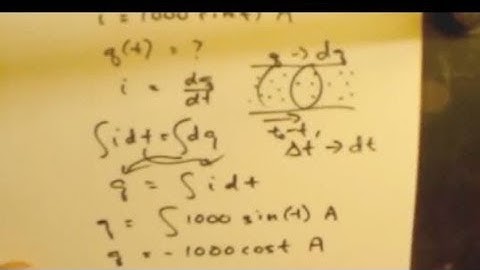 i = 1000 sin t A
q(t) = ?
q → dq
i = dq/dt
t₀ - t₁
Δt → dt
∫idt = ∫dq
q = ∫idt
q = ∫1000 sin(t) A
q = -1000 cost A